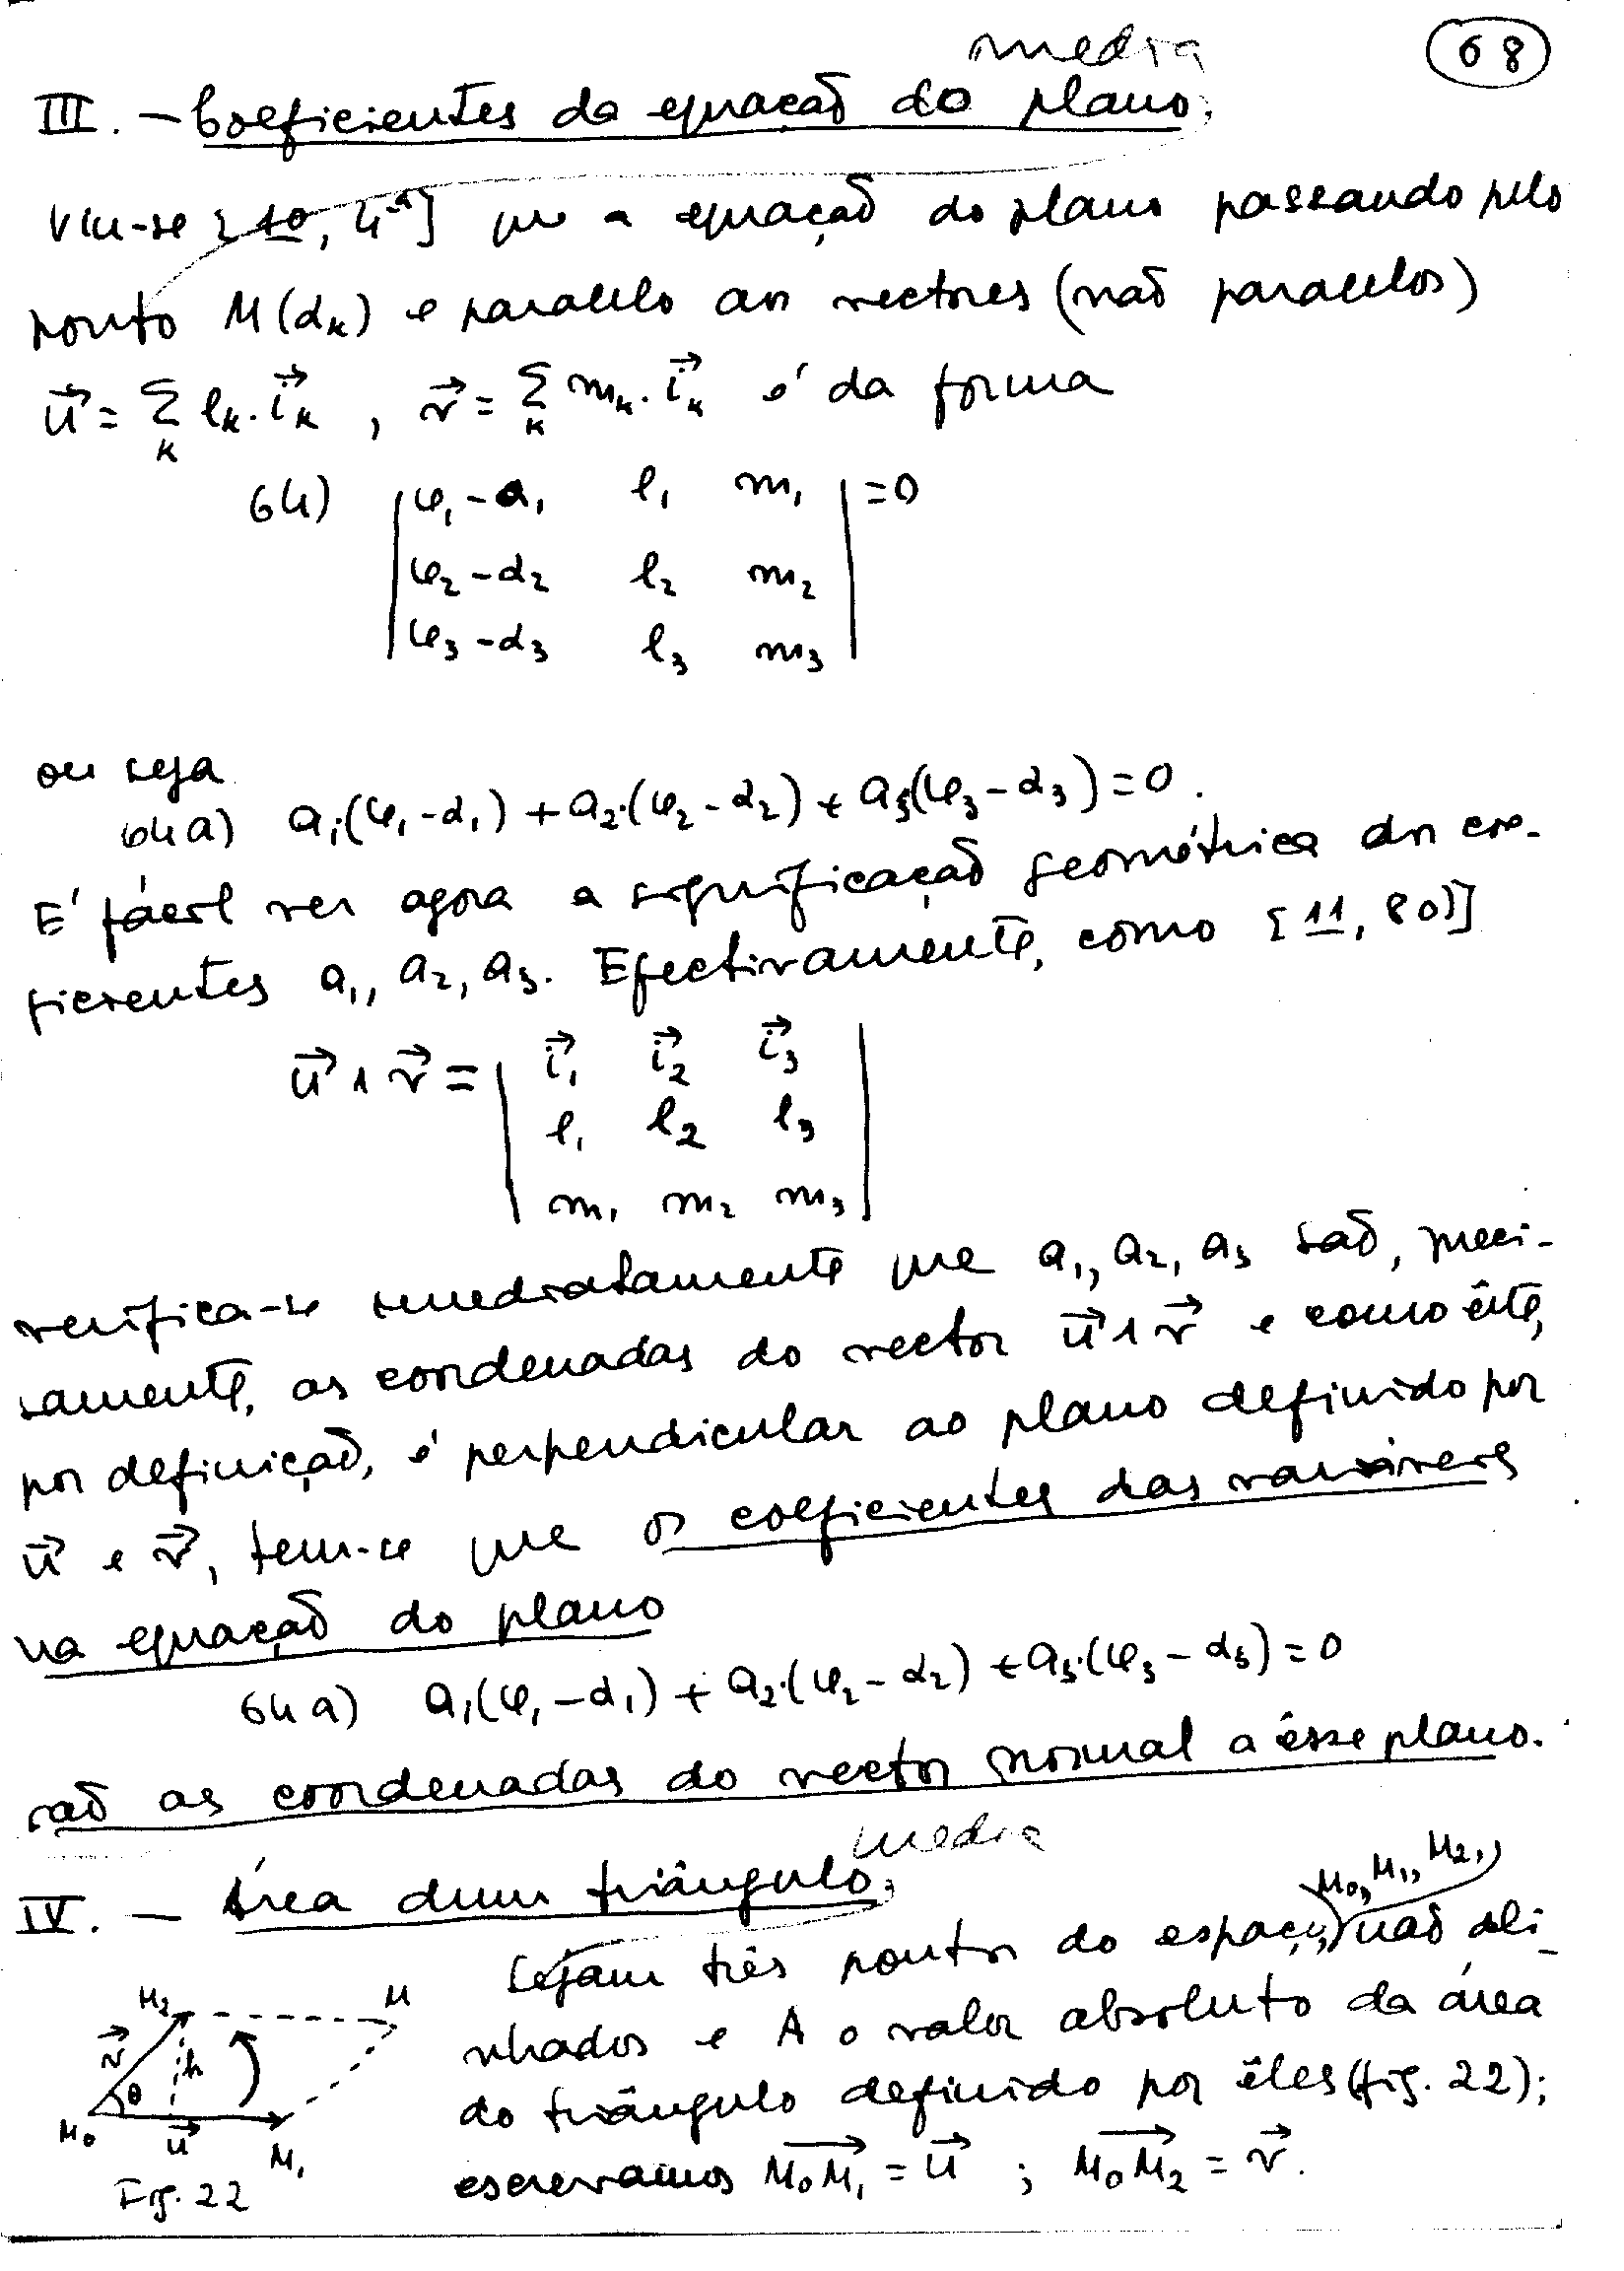 68
media
III. — Coeficientes da equação do plano.
Viu-se [10, 4-a] que a equação do plano passando pelo
ponto M(α_k) e paralelo aos vectores (não paralelos)
u⃗ = Σ_k l_k · i⃗_k , v⃗ = Σ_k m_k · i⃗_k é da forma
64) | φ₁ - α₁ l₁ m₁ | = 0
| φ₂ - α₂ l₂ m₂ |
| φ₃ - α₃ l₃ m₃ |
ou seja
64a) a₁·(φ₁ - α₁) + a₂·(φ₂ - α₂) + a₃·(φ₃ - α₃) = 0.
É fácil ver agora a significação geométrica dos coe-
ficientes a₁, a₂, a₃. Efectivamente, como [11, 80)]
u⃗ ∧ v⃗ = | i⃗₁ i⃗₂ i⃗₃ |
| l₁ l₂ l₃ |
| m₁ m₂ m₃ |
verifica-se imediatamente que a₁, a₂, a₃ são, preci-
samente, as coordenadas do vector u⃗ ∧ v⃗ e como êste,
por definição, é perpendicular ao plano definido por
u⃗ e v⃗, tem-se que os coeficientes das variáveis
na equação do plano
64a) a₁(φ₁ - α₁) + a₂·(φ₂ - α₂) + a₃·(φ₃ - α₃) = 0
são as coordenadas do vector normal a êsse plano.
media
IV. — Área dum triângulo.
M₀, M₁, M₂,
Sejam três pontos do espaço, não ali-
nhados e A o valor absoluto da área
do triângulo definido por êles (fig. 22);
escrevamos M₀M₁⃗ = u⃗ ; M₀M₂⃗ = v⃗.
M₂ M
v⃗ h
θ
M₀ u⃗ M₁
Fig. 22